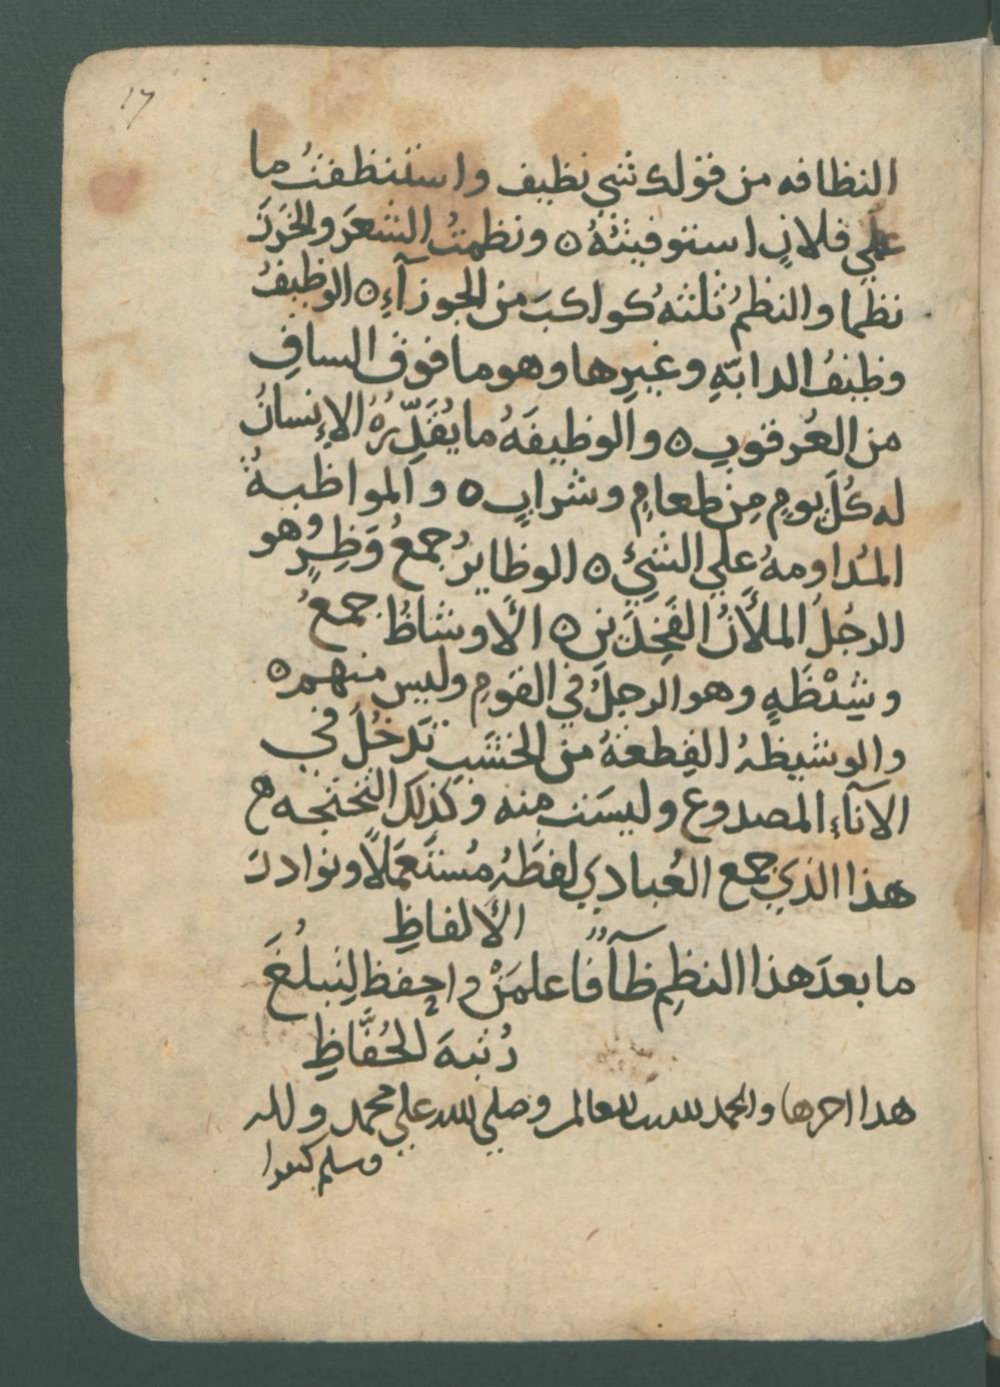 17
النظافه من قولك شي نظيف واستنظفتُ ما
علي فلانٍ استوفيتُهُ ه ونظمتُ الشعرَ والخَرَزَ
نظما والنظمُ ثلثه كواكبَ من الجوزآءِ ه الوظيفُ
وظيفُ الدابّهِ وغيرِها وهو ما فوق الساقِ
من العُرقوبِ ه والوظيفَهُ ما يُقَدِّرُهُ الإنسانُ
له كُلَّ يومٍ مِن طعامٍ وشرابٍ ه والمواظبهُ
المُداومهُ علي الشيءِ ه الوظايرُ جمعُ وَظِرٍ وهو
الرجُلُ الملأَنُ الفَخِذَينِ ه الأَوشاظُ جمعُ
وشِيْظَهٍ وهو الرجلُ في القومِ وليس منهم ه
والوشيظهُ القِطعهُ من الخشَبِ تَدخُلُ في
الآناءِ المصدوع وليسَت منه وكذلك التختجه ه
هذا الذي جمع العُبادي لفظَهُ مُستَعمَلاً ونوادرَ
الأَلفاظِ
ما بعدَ هذا النظمِ ظآءٌ فاعلمَنْ واحفظ لِتبلُغَ
رُتبهَ الحُفَّاظِ
هدا اخرها والحمد لله رب العالمين وصلي الله علي محمد واله
وسلم كثيرا